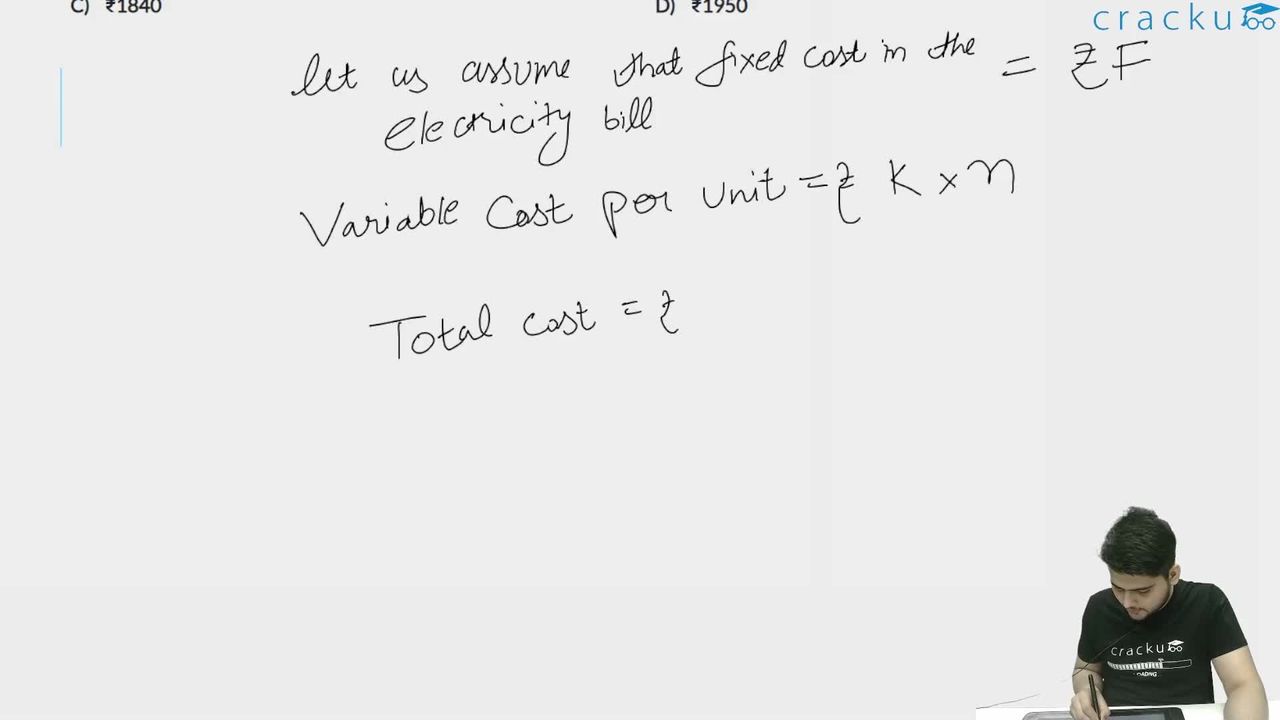 C) ₹1840 D) ₹1950
cracku
let us assume that fixed cost in the = ₹F
electricity bill
Variable Cost per unit = ₹ K × n
Total cost = ₹
cracku
LOADING